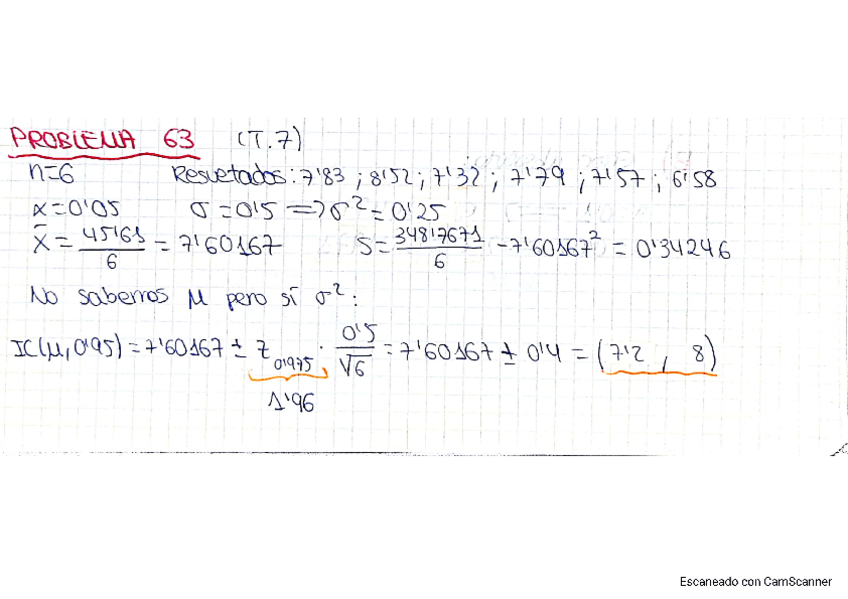 PROBLEMA 63 (T.7)
n=6 Resultados: 7'83 ; 8'52 ; 7'32 ; 7'79 ; 7'57 ; 6'58
α=0'05 σ=0'5 => σ²=0'25
X̄ = 45'61/6 = 7'60167 S = 348'7671/6 - 7'60167² = 0'34246
No sabemos μ pero sí σ²:
IC(μ, 0'95) = 7'60167 ± z 0'975 · 0'5/√6 = 7'60167 ± 0'4 = (7'2 , 8)
1'96
Escaneado con CamScanner